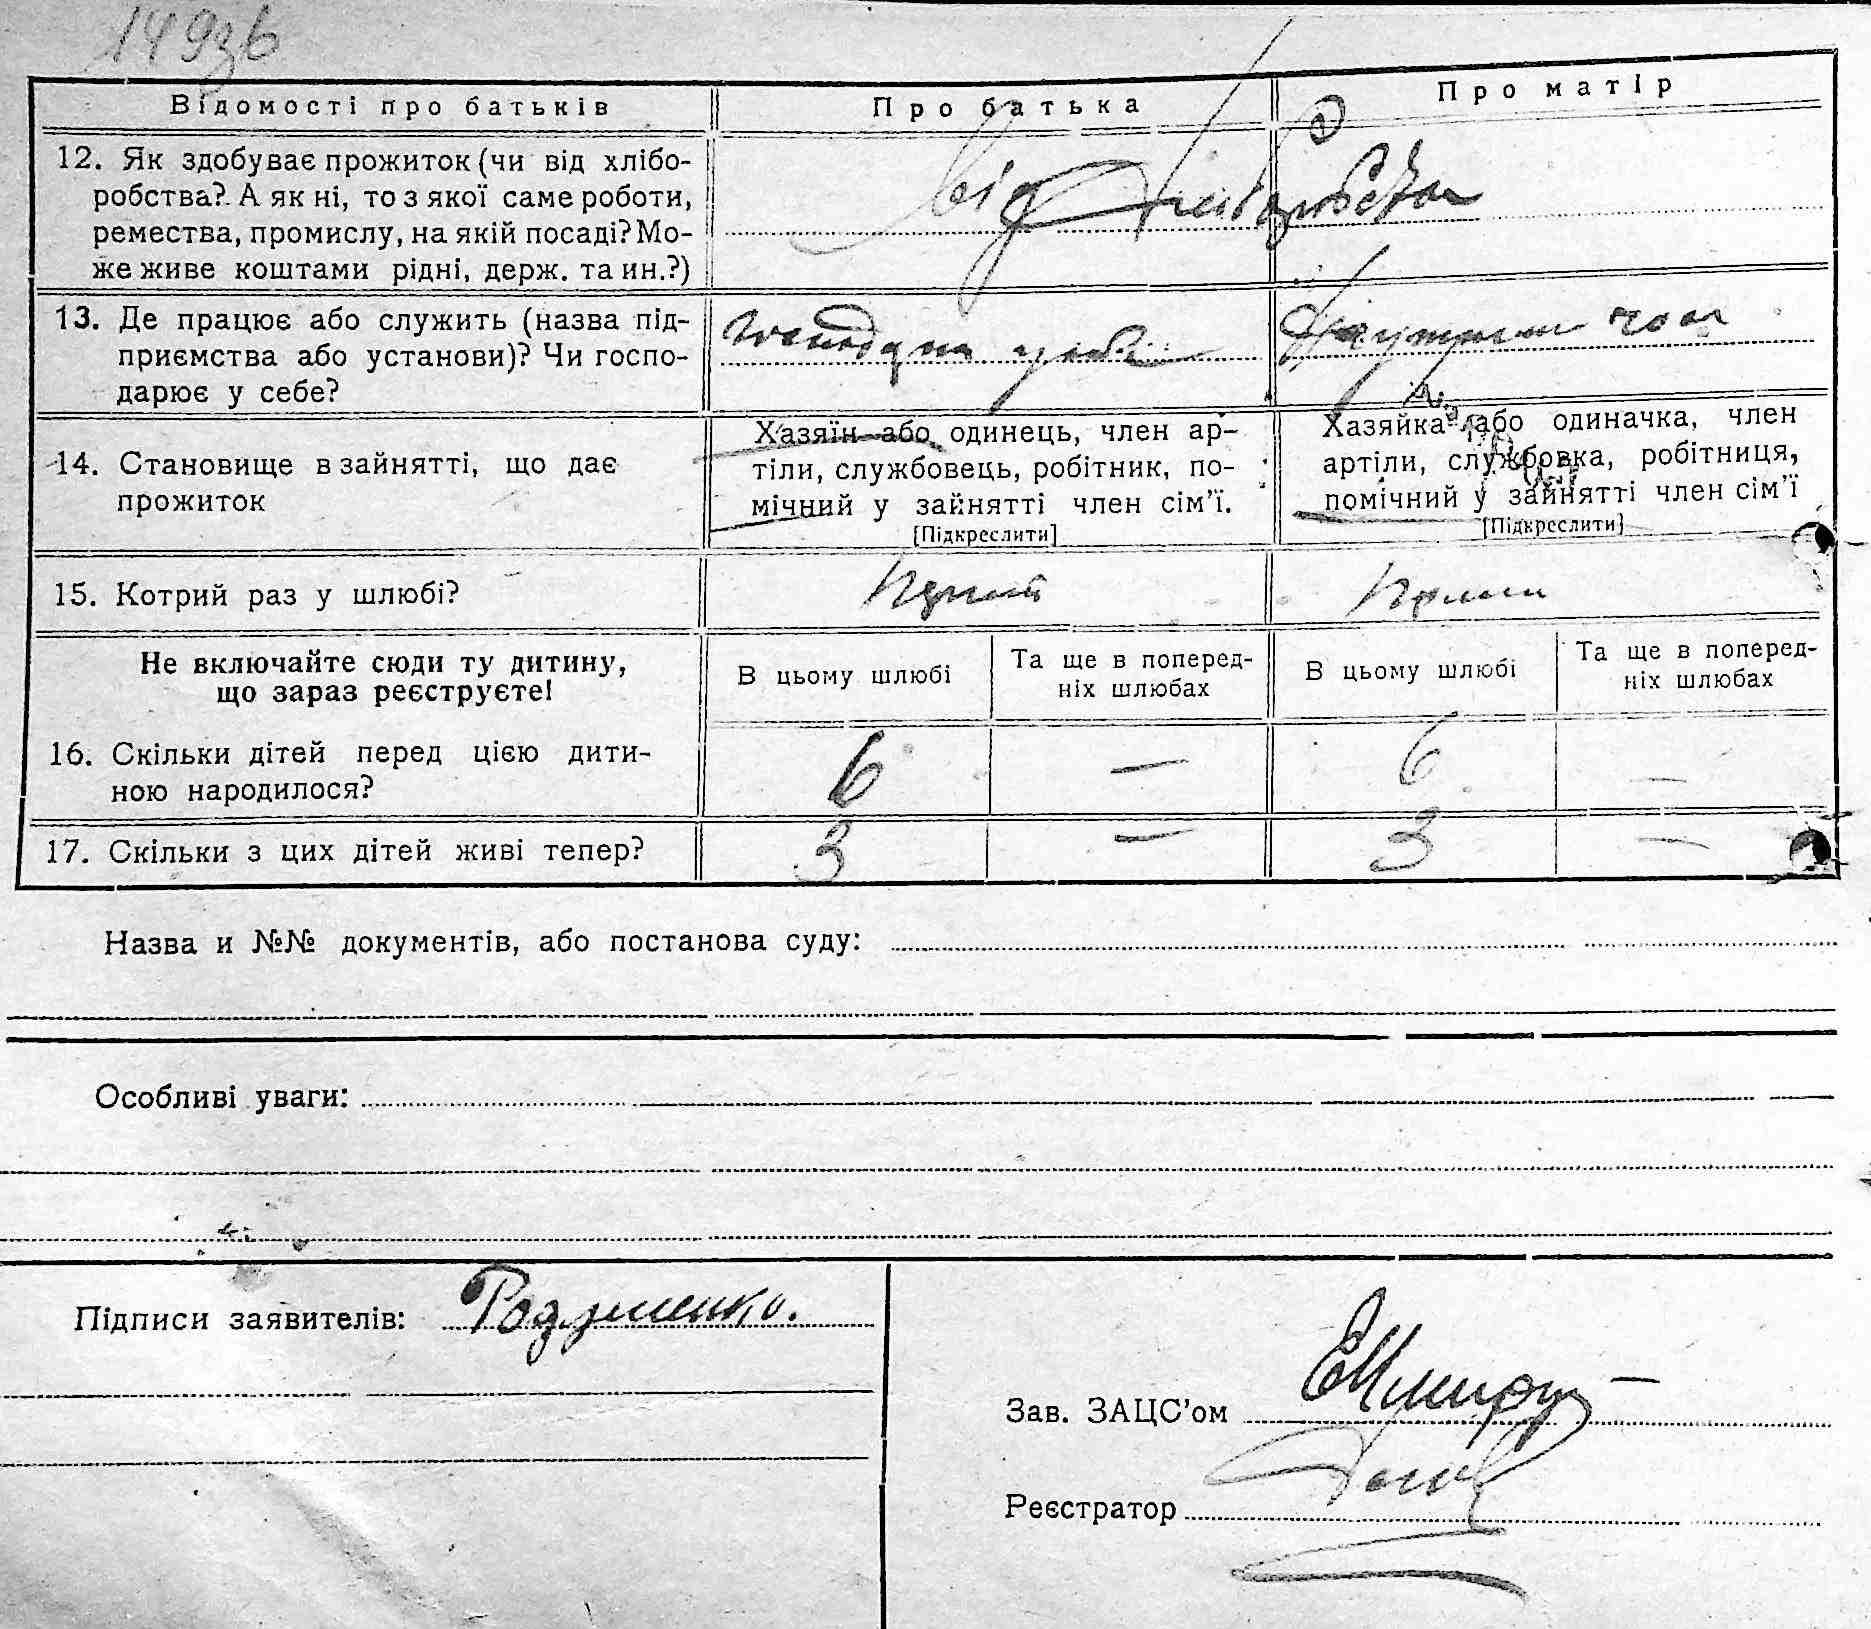 149зв
Відомості про батьків
Про батька
Про матір
12. Як здобуває прожиток (чи від хлібо-
робства? А як ні, то з якої саме роботи,
ремества, промислу, на якій посаді? Мо-
же живе коштами рідні, держ. та ин.?)
від хліборобства
13. Де працює або служить (назва під-
приємства або установи)? Чи госпо-
дарює у себе?
14. Становище в зайнятті, що дає
прожиток
Хазяїн або одинець, член ар-
тіли, службовець, робітник, по-
мічний у зайнятті член сім'ї.
[Підкреслити]
Хазяйка або одиначка, член
артіли, службовка, робітниця,
помічний у зайнятті член сім'ї
[Підкреслити]
15. Котрий раз у шлюбі?
Не включайте сюди ту дитину,
що зараз реєструєте!
В цьому шлюбі
Та ще в поперед-
ніх шлюбах
В цьому шлюбі
Та ще в поперед-
ніх шлюбах
16. Скільки дітей перед цією дити-
ною народилося?
6 — 6 —
17. Скільки з цих дітей живі тепер?
3 — 3 —
Назва и №№ документів, або постанова суду:
Особливі уваги:
Підписи заявителів:
Зав. ЗАЦС'ом
Реєстратор